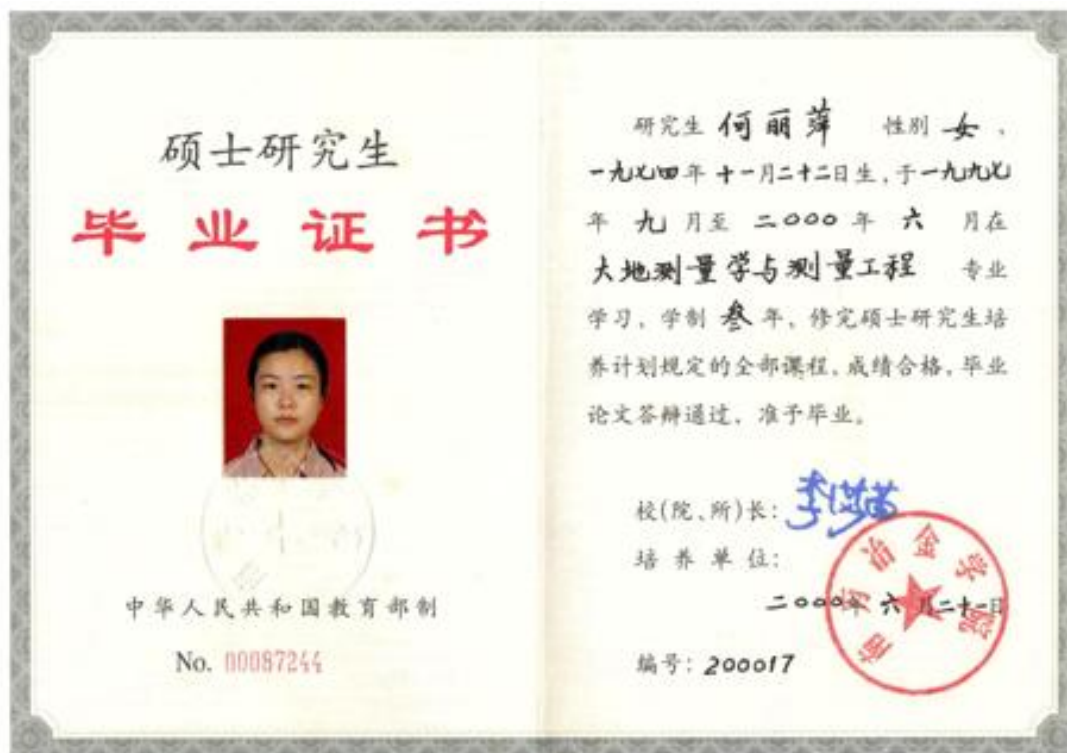 硕士研究生
毕业证书
中华人民共和国教育部制
No. 00087244
研究生 何丽萍 性别 女、
一九七四年十一月二十二日生,于一九九七
年九月至二〇〇〇年六月在
大地测量学与测量工程 专业
学习,学制叁年,修完硕士研究生培
养计划规定的全部课程,成绩合格,毕业
论文答辩通过,准予毕业。
校(院、所)长:
培养单位:
南方冶金学院
二〇〇〇年六月二十一日
编号:200017